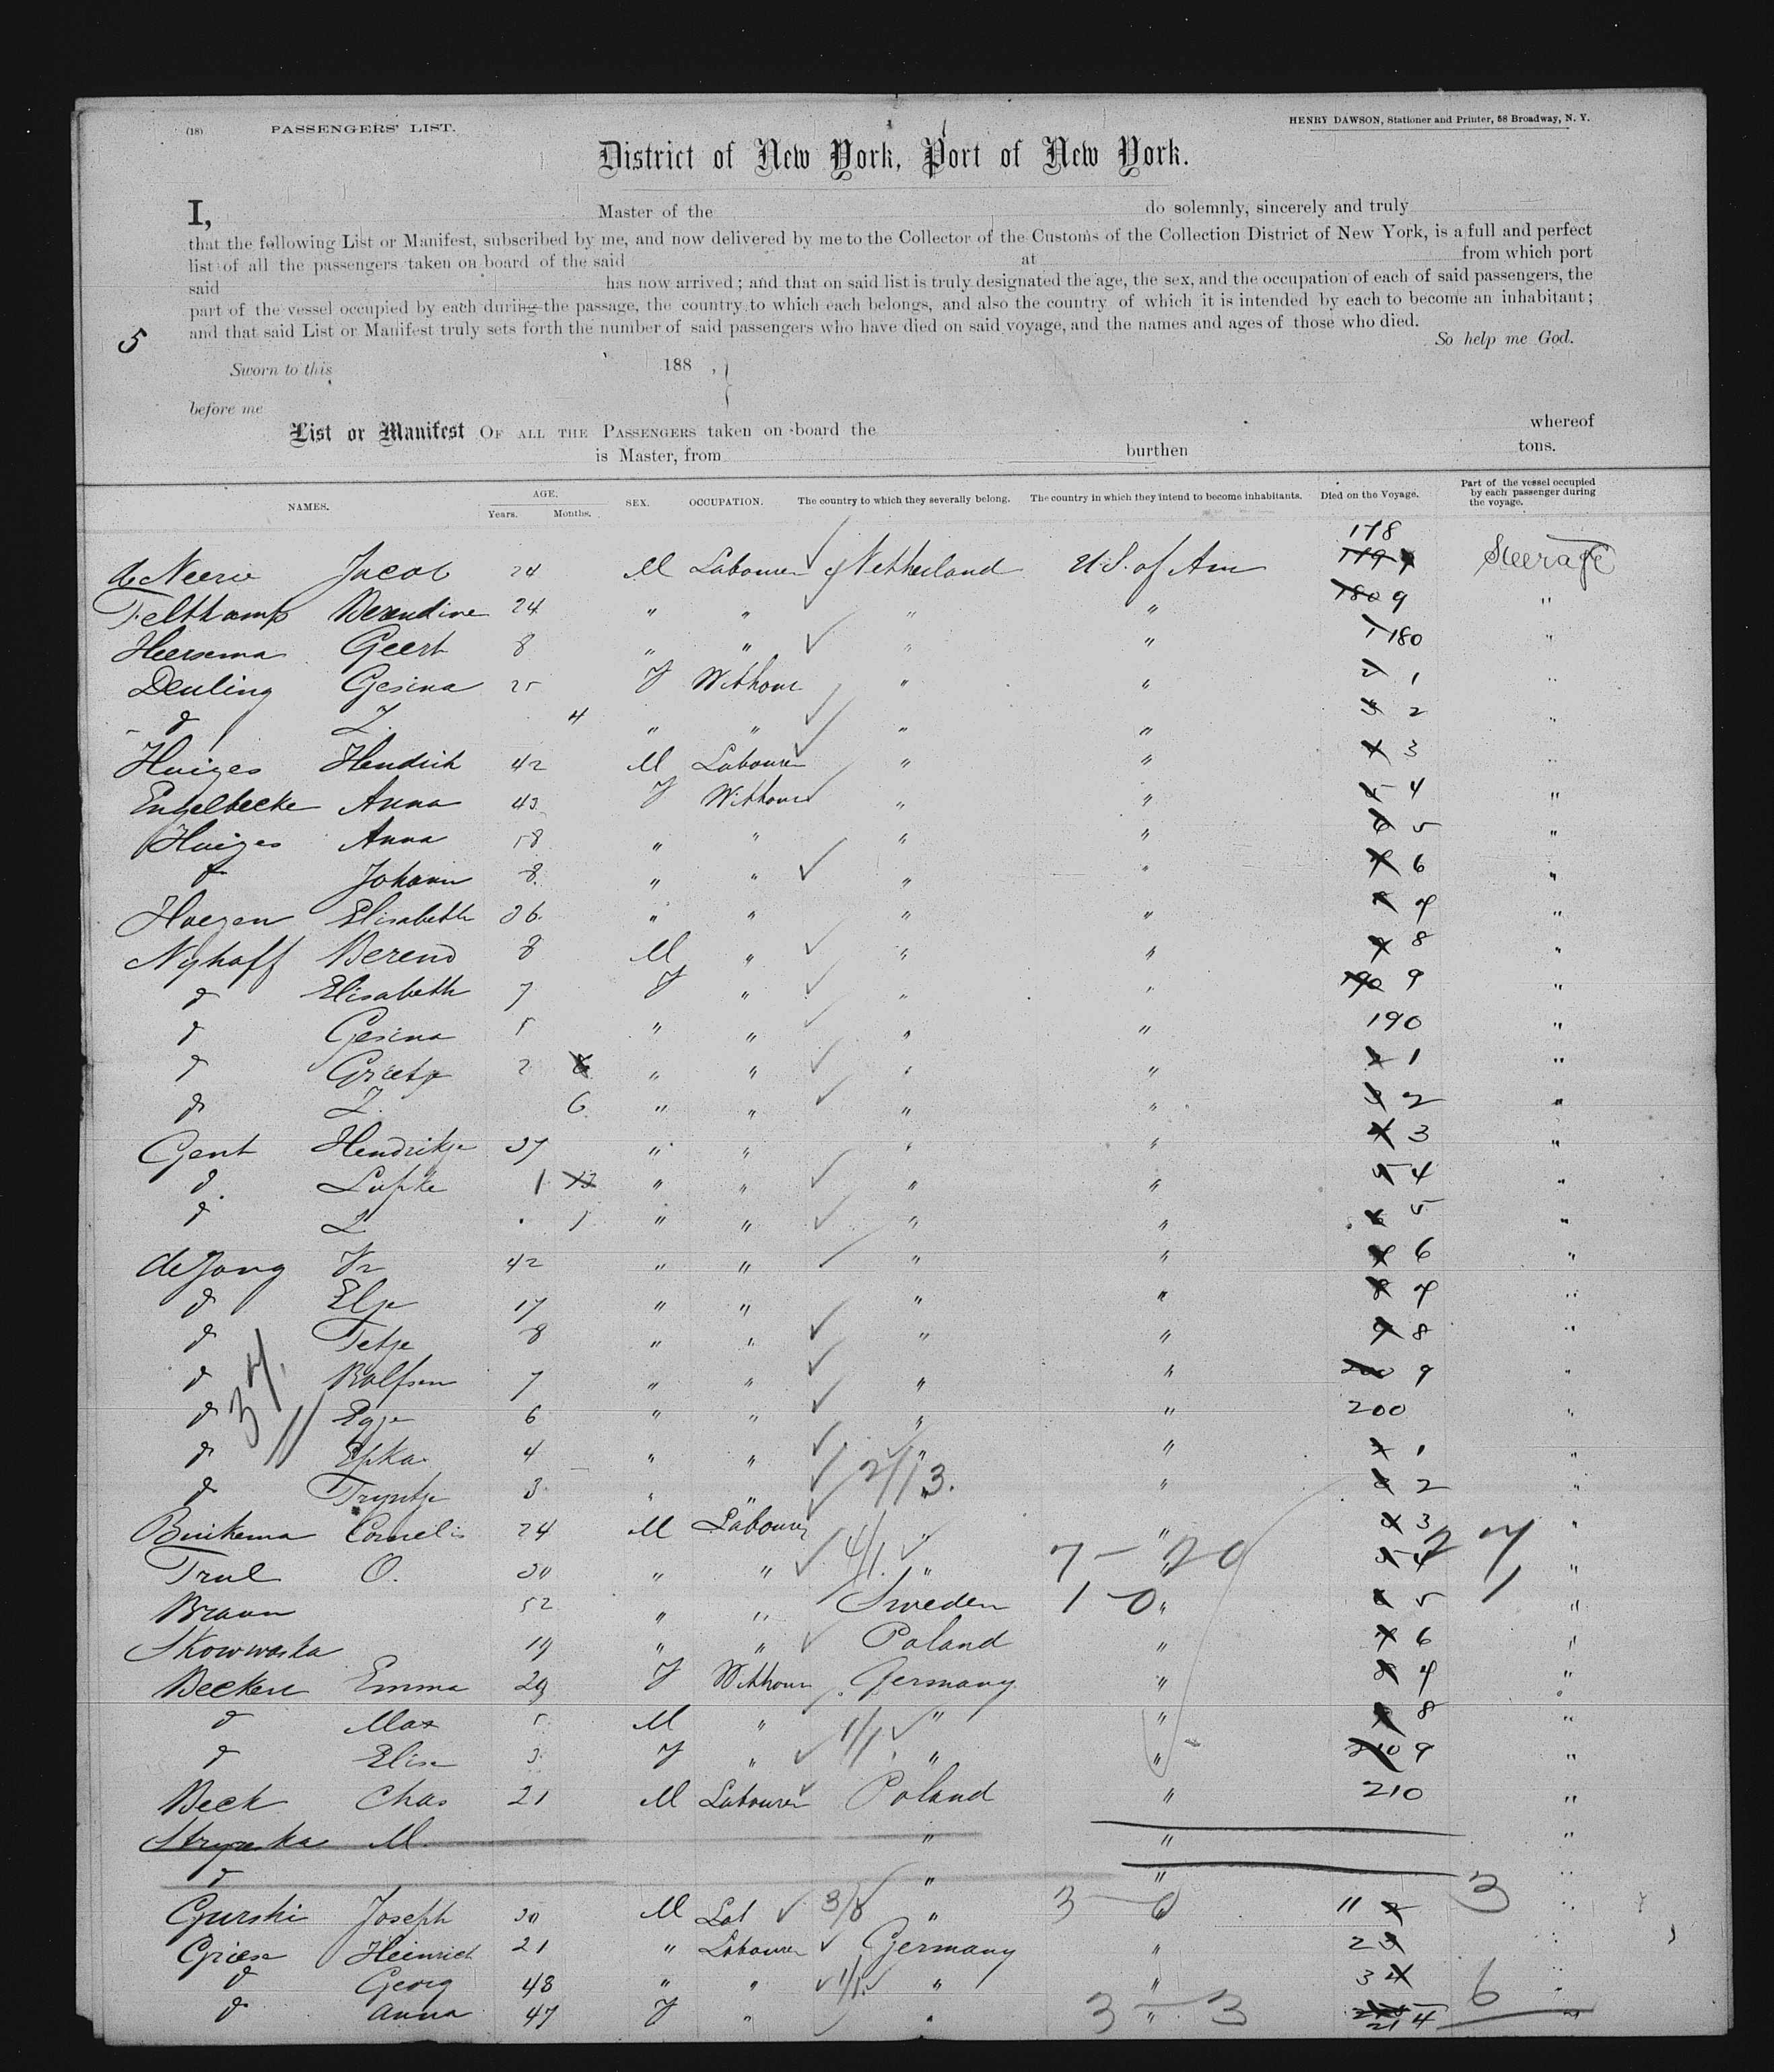 (18) PASSENGERS' LIST. HENRY DAWSON, Stationer and Printer, 58 Broadway, N. Y.
District of New York, Port of New York.
I, Master of the do solemnly, sincerely and truly
that the following List or Manifest, subscribed by me, and now delivered by me to the Collector of the Customs of the Collection District of New York, is a full and perfect
list of all the passengers taken on board of the said at from which port
said has now arrived; and that on said list is truly designated the age, the sex, and the occupation of each of said passengers, the
part of the vessel occupied by each during the passage, the country to which each belongs, and also the country of which it is intended by each to become an inhabitant;
and that said List or Manifest truly sets forth the number of said passengers who have died on said voyage, and the names and ages of those who died.
5 So help me God.
Sworn to this 188 ,
before me
List or Manifest OF ALL THE PASSENGERS taken on board the whereof
is Master, from burthen tons.
NAMES. AGE. Years. Months. SEX. OCCUPATION. The country to which they severally belong. The country in which they intend to become inhabitants. Died on the Voyage. Part of the vessel occupied by each passenger during the voyage.
178
de Neerie Jacob 24 M Labourer Netherland U.S. of Am 179 Steerage
Feltkamp Berendine 24 " " " " 180 9 "
Heersema Geert 8 " " " " 180 "
Deuling Gesina 25 F Without " " 1 "
d Z. 4 " " " " 3 2 "
Huizes Hendrik 42 M Labourer " " 4 3 "
Engelbecke Anna 43 F Without " " 5 4 "
Huizes Anna 58 " " " " 6 5 "
d Johann 8 " " " " 7 6 "
Huezen Elisabeth 36 " " " " 8 7 "
Nyhoff Berend 8 M " " " 9 8 "
d Elisabeth 7 F " " " 190 9 "
d Gesina 5 " " " " 190 "
d Grietje 2 6 " " " " 2 1 "
d Z. 6 " " " " 3 2 "
Gent Hendrikje 37 " " " " 4 3 "
d Lupke 1 " " " " 5 4 "
d Z 1 " " " " 6 5 "
de Jong Vr 42 " " " " 7 6 "
d Elje 17 " " " " 8 7 "
d Tetje 8 " " " " 9 8 "
d Rolfsen 7 " " " " 200 9 "
d Egje 6 " " " " 200 "
d Epka 4 " " " " 2 1 "
d Tryntje 3 " " 2/13. " " 3 2 "
Buikema Cornelis 24 M Labourer " " 4 3 "
Trul O. 30 " " 4/1. " 7 - 20 " 5 4 27 "
Braun 52 " " Sweden 1 - 0 " 6 5 1 "
Skowwaska 19 " " Poland " 7 6 "
Beckere Emma 29 F Without Germany " 8 7 "
d Max 5 M " 1/1 " " 9 8 "
d Elise 3 F " " " 210 9 "
Beck Chas 21 M Labourer Poland " 210 "
M. " " "
d " " "
Gurski Joseph 30 M Lab 3/0 " 3 - 0 11 2 3 "
Griese Heinrich 21 " Labourer Germany " 2 3 "
d Georg 48 " " 1/1. " " 3 4 6 "
d Anna 47 F " " 3 - 3 " 214 "